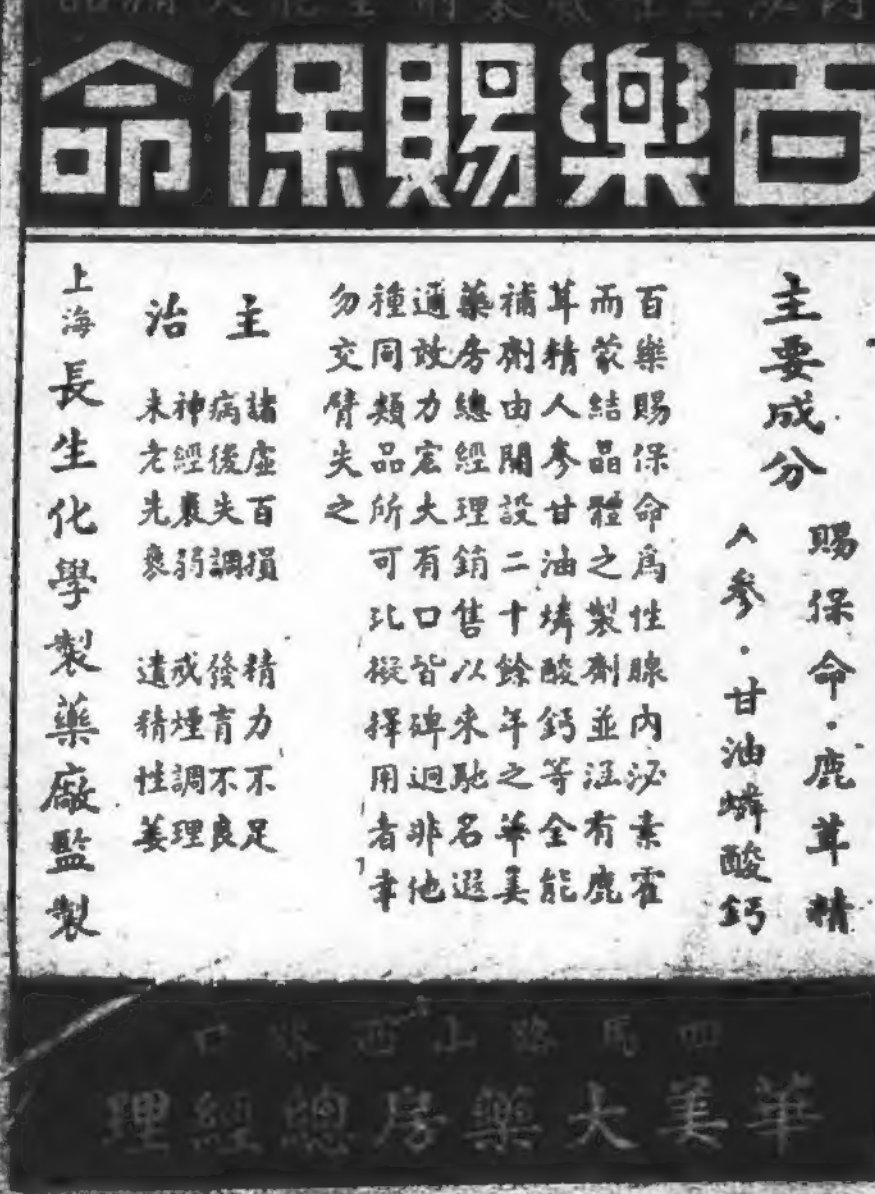 百樂賜保命
主要成分
賜保命·鹿茸精
人參·甘油燐酸鈣
百樂賜保命爲性腺內泌素霍
而蒙結晶體之製劑並涵有鹿
茸精人參甘油燐酸鈣等全能
補劑由開設二十餘年之華美
藥房總經理銷售以來馳名遐
邇效力宏大有口皆碑迥非他
種同類品所可比擬擇用者幸
勿交臂失之
主治
諸虛百損 精力不足
病後失調 發育不良
神經衰弱 戒煙調理
未老先衰 遺精性萎
上海長生化學製藥廠監製
四馬路山西路口
華美大藥房總經理